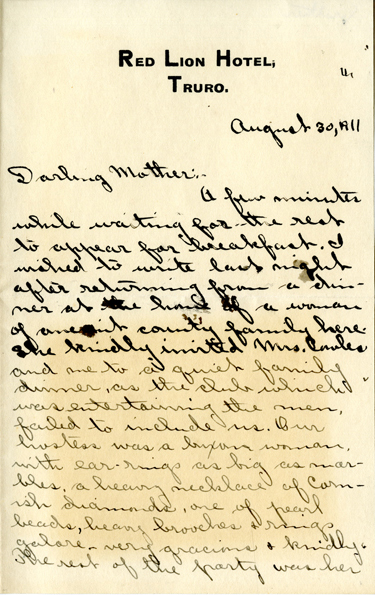 RED LION HOTEL,
TRURO.
August 30, 1911
Darling Mother:-
A few minutes
while waiting for the rest
to appear for breakfast. I
wished to write last night
after returning from a din-
ner at the home of a woman
of county family here.
She kindly invited Mrs. Cowles
and me to a quiet family
dinner, as the club which
was entertaining the men,
failed to include us. Our
hostess was a buxom woman,
with ear-rings as big as mar-
bles, a heavy necklace of Corn-
ish diamonds, one of pearl
beads, heavy brooches & rings
galore - very gracious & kindly.
The rest of the party was her